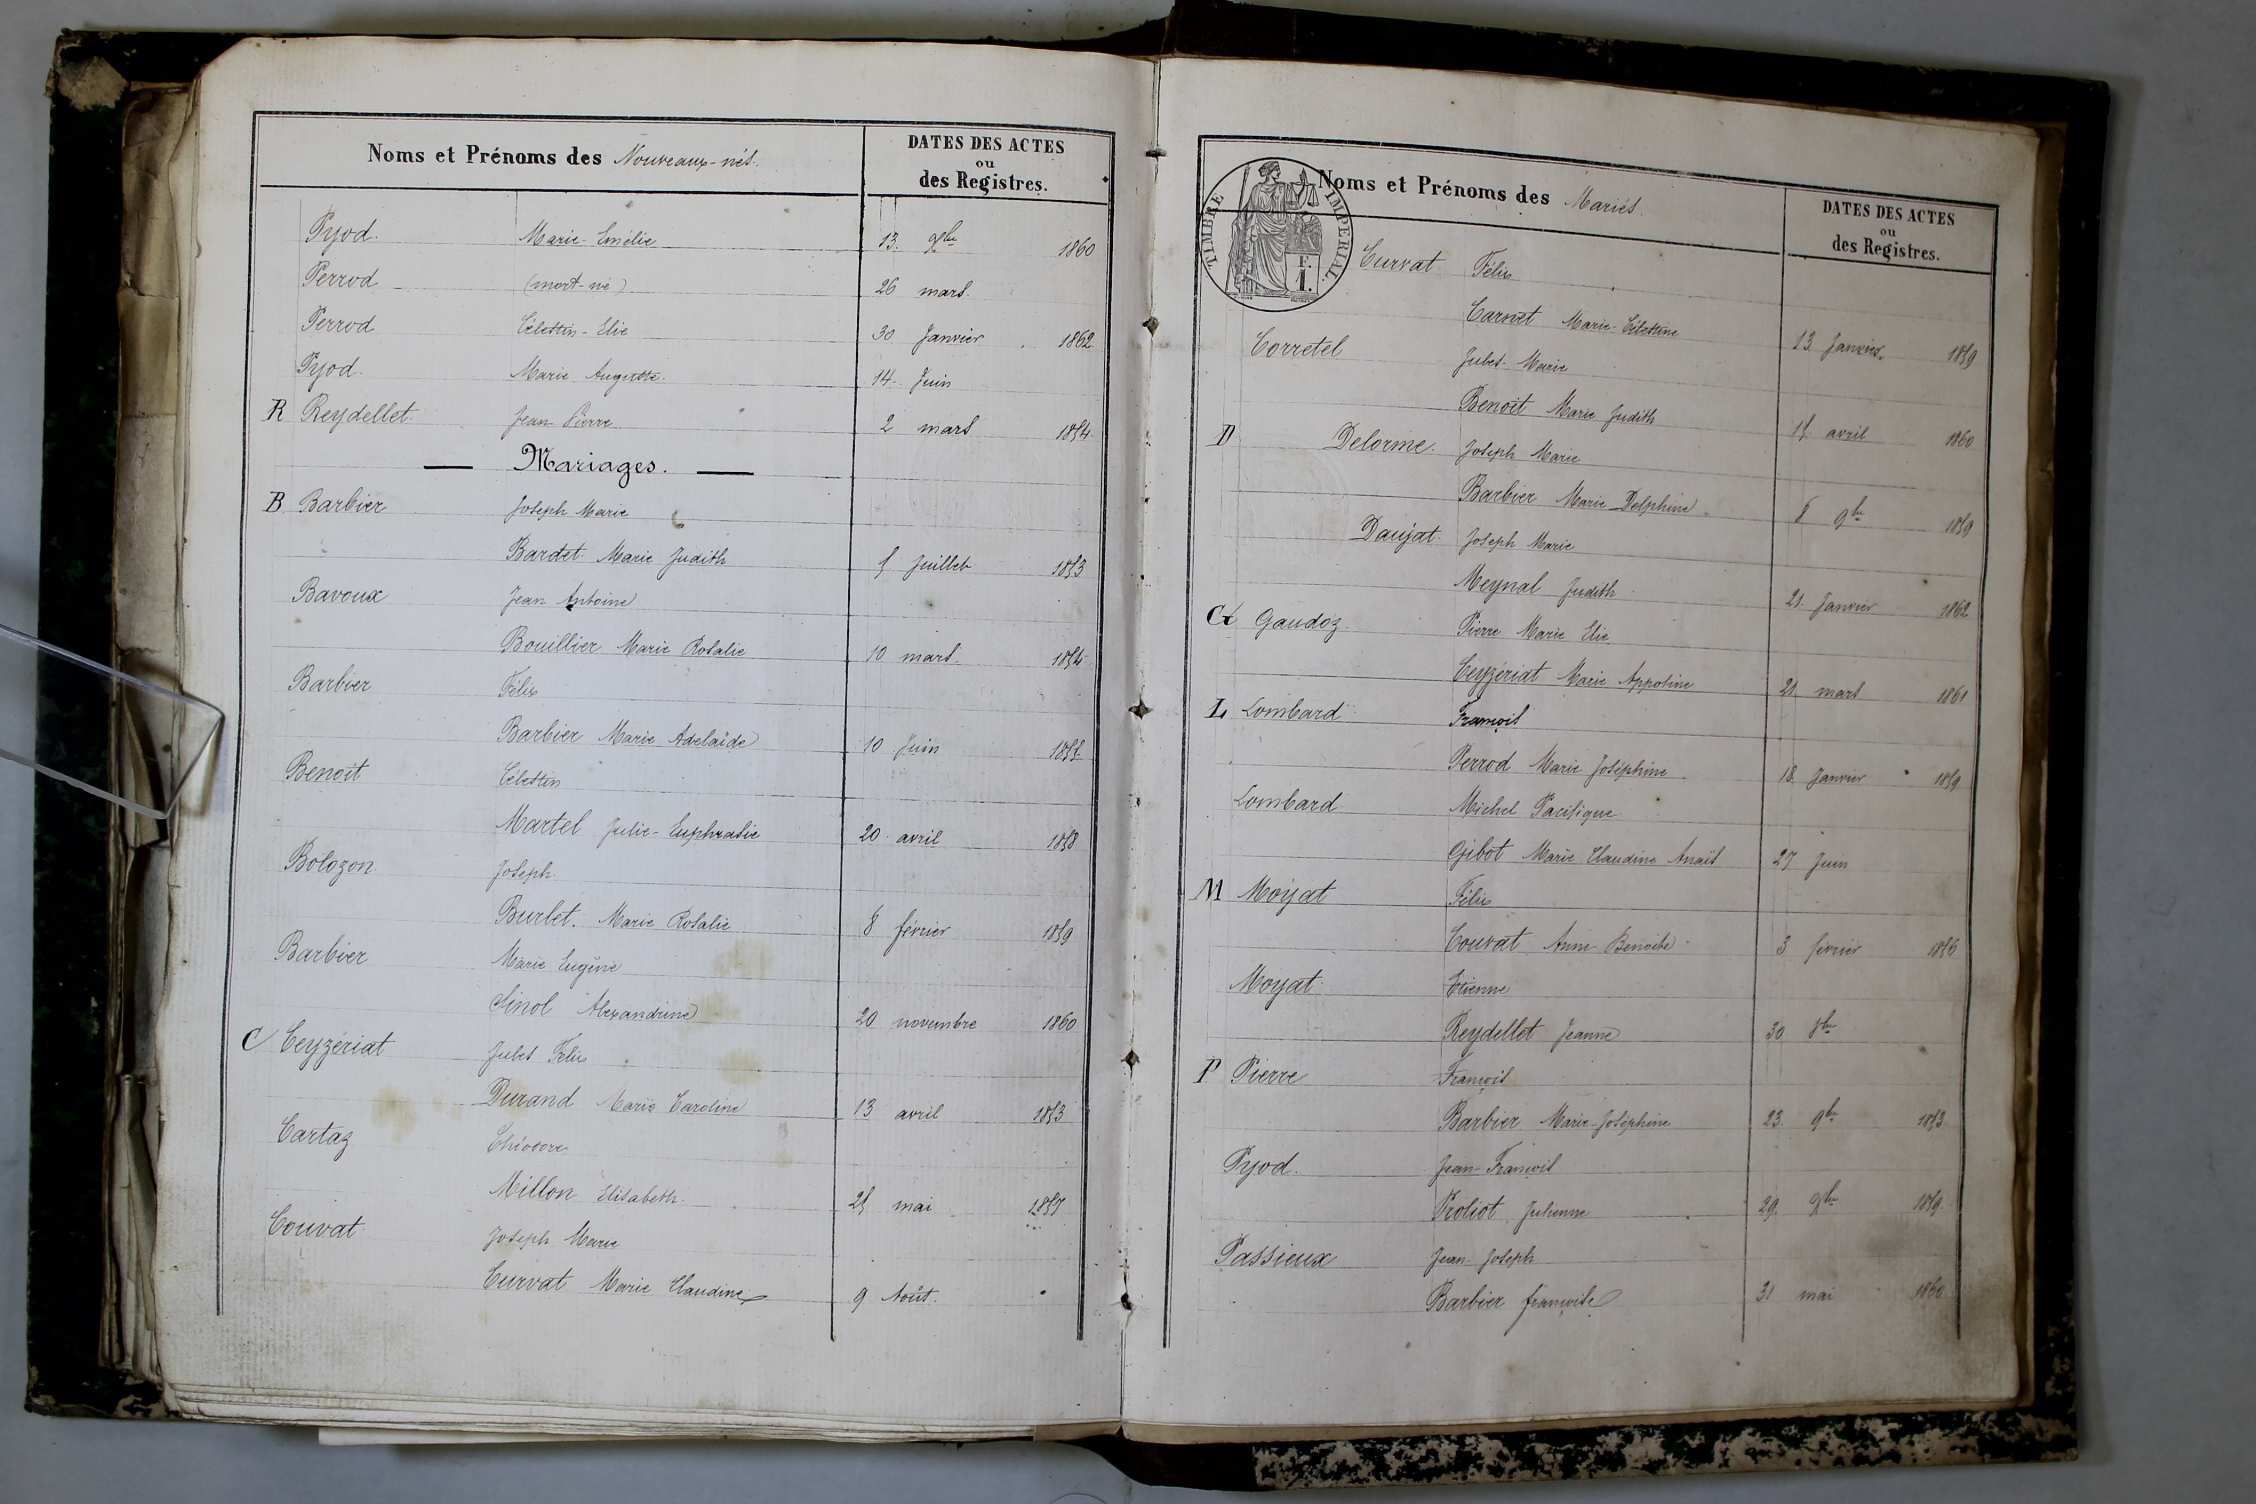 Noms et Prénoms des Nouveaux-nés.
DATES DES ACTES
ou
des Registres.
Pyod. Marie-Emélie 13. 9bre 1860
Perrod (mort-né) 26 mars.
Perrod Célestin-Elie 30 Janvier 1862
Pyod. Marie Auguste. 14. Juin
R Reydellet. Jean-Pierre 2 mars 1854
Mariages.
B Barbier Joseph Marie
Bardet Marie Judith 5 Juillet 1853
Bavoux Jean Antoine
Bouillier Marie Rosalie 10 mars. 1854
Barbier Félix
Barbier Marie Adelaïde 10 Juin 1855
Benoit Célestin
Martel Julie-Euphrasie 20 avril 1858
Bolozon Joseph
Burlet. Marie Rosalie 8 février 1859
Barbier Marie Eugène
Sinol Alexandrine 20 novembre 1860
C Ceyzériat Jules Félix
Durand Marie Caroline 13 avril 1853
Cartaz
Millon Elisabeth. 25 mai 1857
Couvat Joseph Marie
Curvat Marie Claudine 9 Août.
TIMBRE IMPERIAL.
F.
1.
Noms et Prénoms des Mariés.
DATES DES ACTES
ou
des Registres.
Curvat Félix
Carnet Marie-Célestine 13 Janvier. 1859
Corretel Jules-Marie
Benoit Marie Judith 15 avril 1860
D Delorme. Joseph Marie
Barbier Marie-Delphine 8 9bre 1859
Daujat Joseph Marie
Meynal Judith 21 Janvier 1862
G Gaudoz Pierre Marie Elie
Ceyzériat Marie Appoline 21 mars 1861
L Lombard François
Perrod Marie Joséphine 18 Janvier 1859
Lombard Michel Pacifique
Gibot Marie Claudine Anaïs 27 Juin
M Moyat Félix
Couvat Anne-Benoite 3 février 1856
Moyat Etienne
Reydellet Jeanne 30 8bre
P Pierre François
Barbier Marie-Joséphine 23. 9bre 1853
Pyod. Jean-François
Proliot Julienne 29. 9bre 1859
Passieux Jean-Joseph
Barbier françoise 31 mai 1860